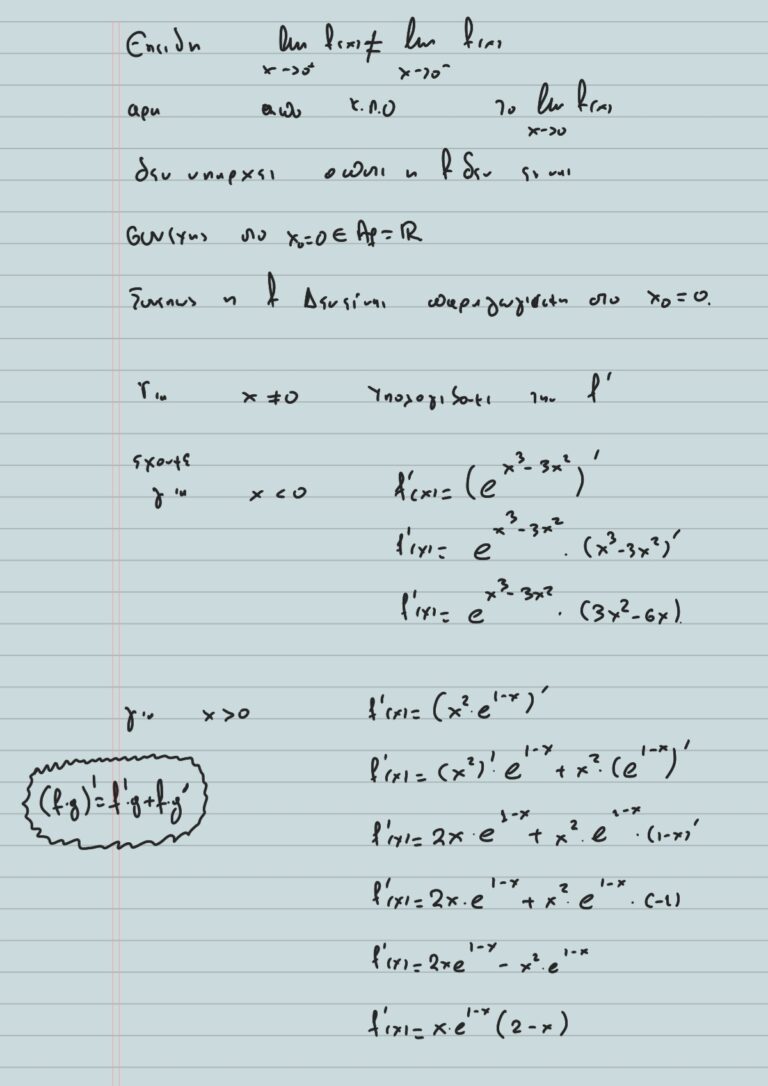 Επειδη lim f(x) ≠ lim f(x)
x->0⁺ x->0⁻
αρα απο κ.π.ο το lim f(x)
x->0
δεν υπαρχει οποτε η f δεν ειναι
συνεχης στο x₀=0 ∈ Af = ℝ
Συνεπως η f Δεν είναι παραγωγισιμη στο x₀ = 0.
Για x ≠ 0 Υπολογιζεται την f'
έχουμε
για x < 0 f'(x) = (e^(x³-3x²))'
f'(x) = e^(x³-3x²) · (x³-3x²)'
f'(x) = e^(x³-3x²) · (3x²-6x).
για x > 0 f'(x) = (x²·e^(1-x))'
f'(x) = (x²)'·e^(1-x) + x²·(e^(1-x))'
(f·g)' = f'·g + f·g'
f'(x) = 2x·e^(1-x) + x²·e^(1-x)·(1-x)'
f'(x) = 2x·e^(1-x) + x²·e^(1-x)·(-1)
f'(x) = 2xe^(1-x) - x²·e^(1-x)
f'(x) = x·e^(1-x)(2-x)